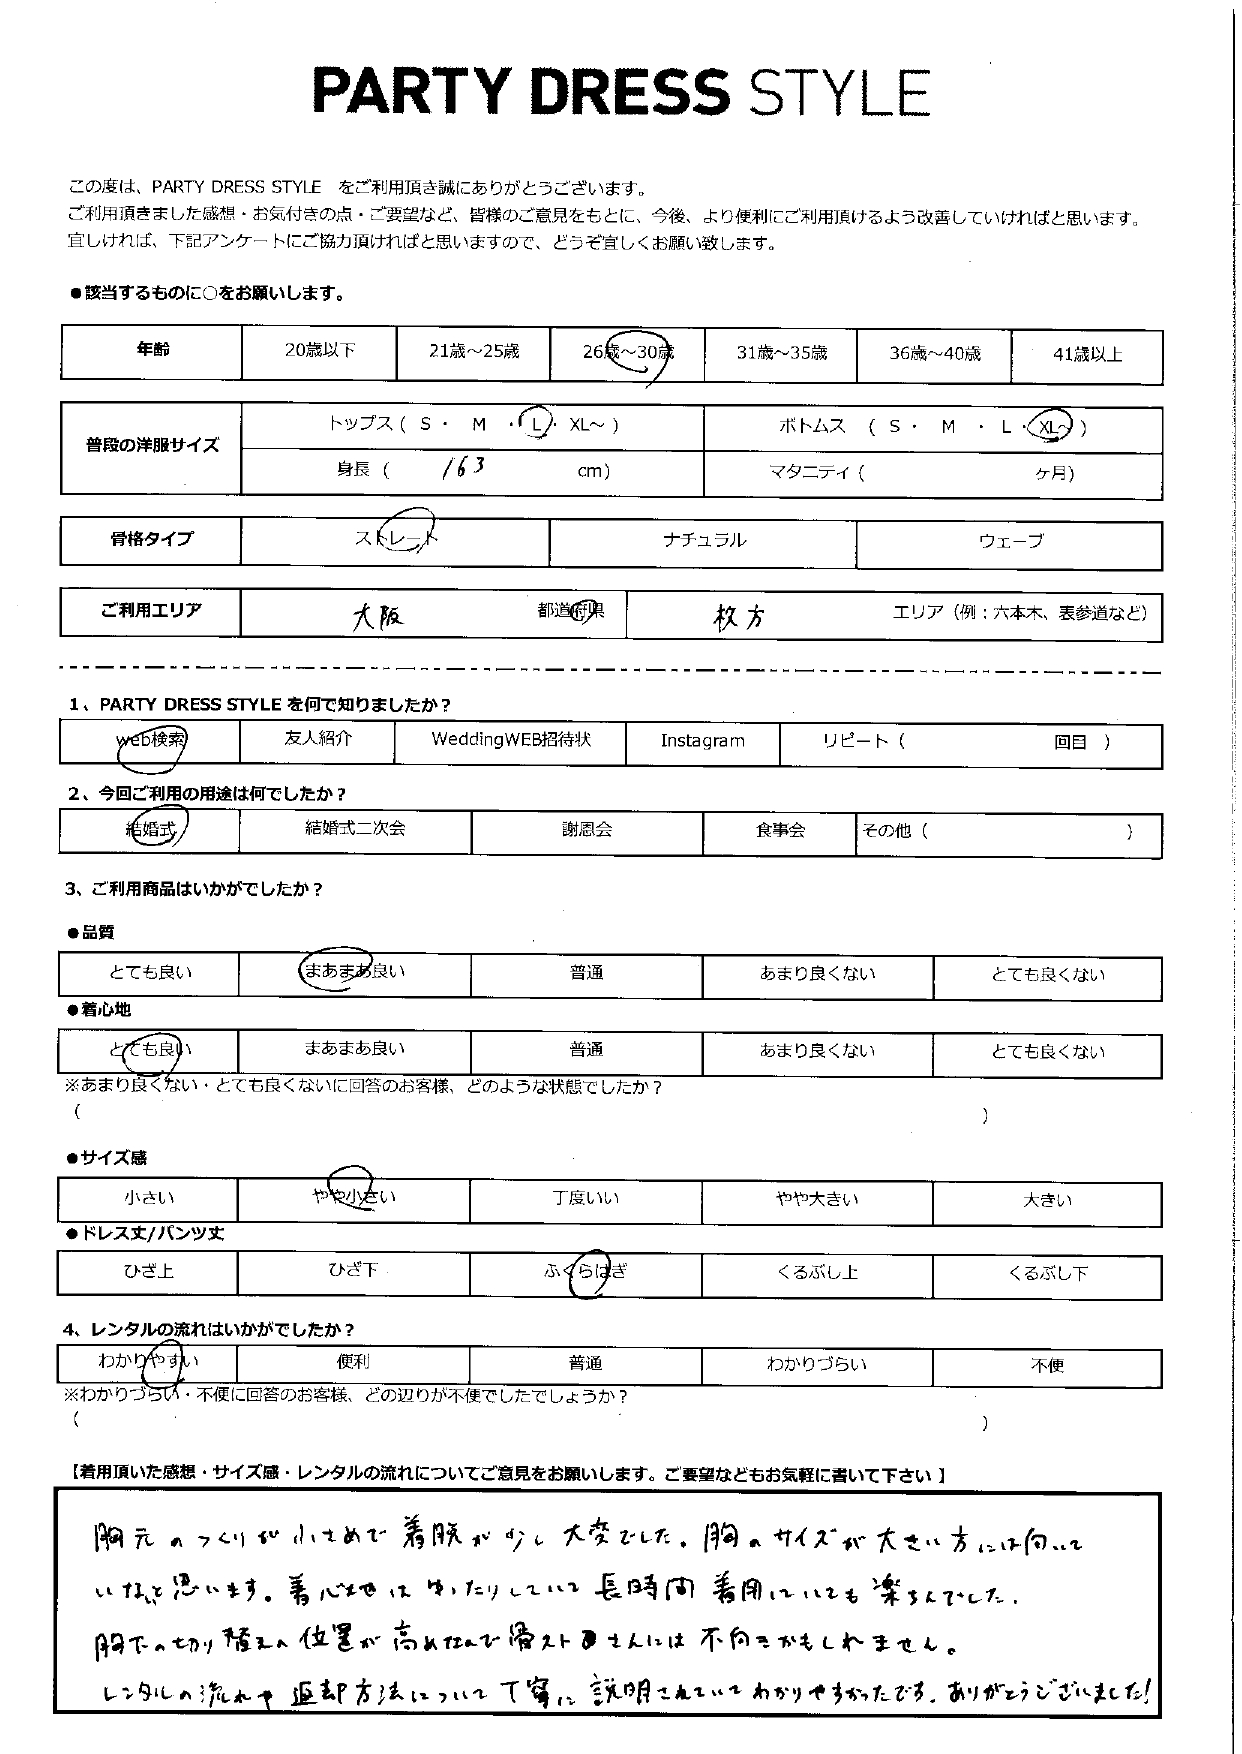 PARTY DRESS STYLE
この度は、PARTY DRESS STYLE をご利用頂き誠にありがとうございます。
ご利用頂きました感想・お気付きの点・ご要望など、皆様のご意見をもとに、今後、より便利にご利用頂けるよう改善していければと思います。
宜しければ、下記アンケートにご協力頂ければと思いますので、どうぞ宜しくお願い致します。
●該当するものに○をお願いします。
年齢 20歳以下 21歳～25歳 26歳～30歳 31歳～35歳 36歳～40歳 41歳以上
普段の洋服サイズ トップス ( S ・ M ・ L ・ XL～ ) ボトムス ( S ・ M ・ L ・ XL～ )
身長 ( 163 cm) マタニティ ( ヶ月)
骨格タイプ ストレート ナチュラル ウェーブ
ご利用エリア 大阪 都道府県 枚方 エリア (例：六本木、表参道など)
1、PARTY DRESS STYLE を何で知りましたか？
web検索 友人紹介 WeddingWEB招待状 Instagram リピート ( 回目 )
2、今回ご利用の用途は何でしたか？
結婚式 結婚式二次会 謝恩会 食事会 その他 ( )
3、ご利用商品はいかがでしたか？
●品質
とても良い まあまあ良い 普通 あまり良くない とても良くない
●着心地
とても良い まあまあ良い 普通 あまり良くない とても良くない
※あまり良くない・とても良くないに回答のお客様、どのような状態でしたか？
( )
●サイズ感
小さい やや小さい 丁度いい やや大きい 大きい
●ドレス丈/パンツ丈
ひざ上 ひざ下 ふくらはぎ くるぶし上 くるぶし下
4、レンタルの流れはいかがでしたか？
わかりやすい 便利 普通 わかりづらい 不便
※わかりづらい・不便に回答のお客様、どの辺りが不便でしたでしょうか？
( )
【着用頂いた感想・サイズ感・レンタルの流れについてご意見をお願いします。ご要望などもお気軽に書いて下さい 】
胸元のつくりが小さめで着脱が少し大変でした。胸のサイズが大きい方には向いて
いないと思います。着心地はゆったりしていて長時間着用していても楽ちんでした。
胸下の切り替えの位置が高めなので骨ストさんには不向きかもしれません。
レンタルの流れや返却方法について丁寧に説明されていてわかりやすかったです。ありがとうございました!